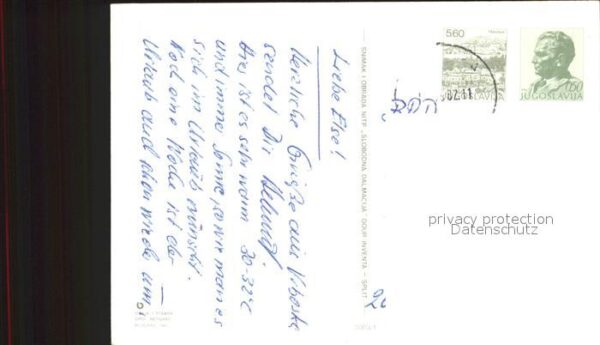 Liebe Else!
Herzliche Grüße aus Vrboska
sendet Dir Helmut!
Hier ist es sehr warm 30-32°C
und immer Sonne so wie man es
sich im Urlaub wünscht.
Noch eine Woche ist der
Urlaub auch schon wieder um.
SNIMAK I OBRADA NITP „SLOBODNA DALMACIJA“ OOUR INVENTA - SPLIT
5.60
JUGOSLAVIJA
1.60
JUGOSLAVIJA
privacy protection
Datenschutz